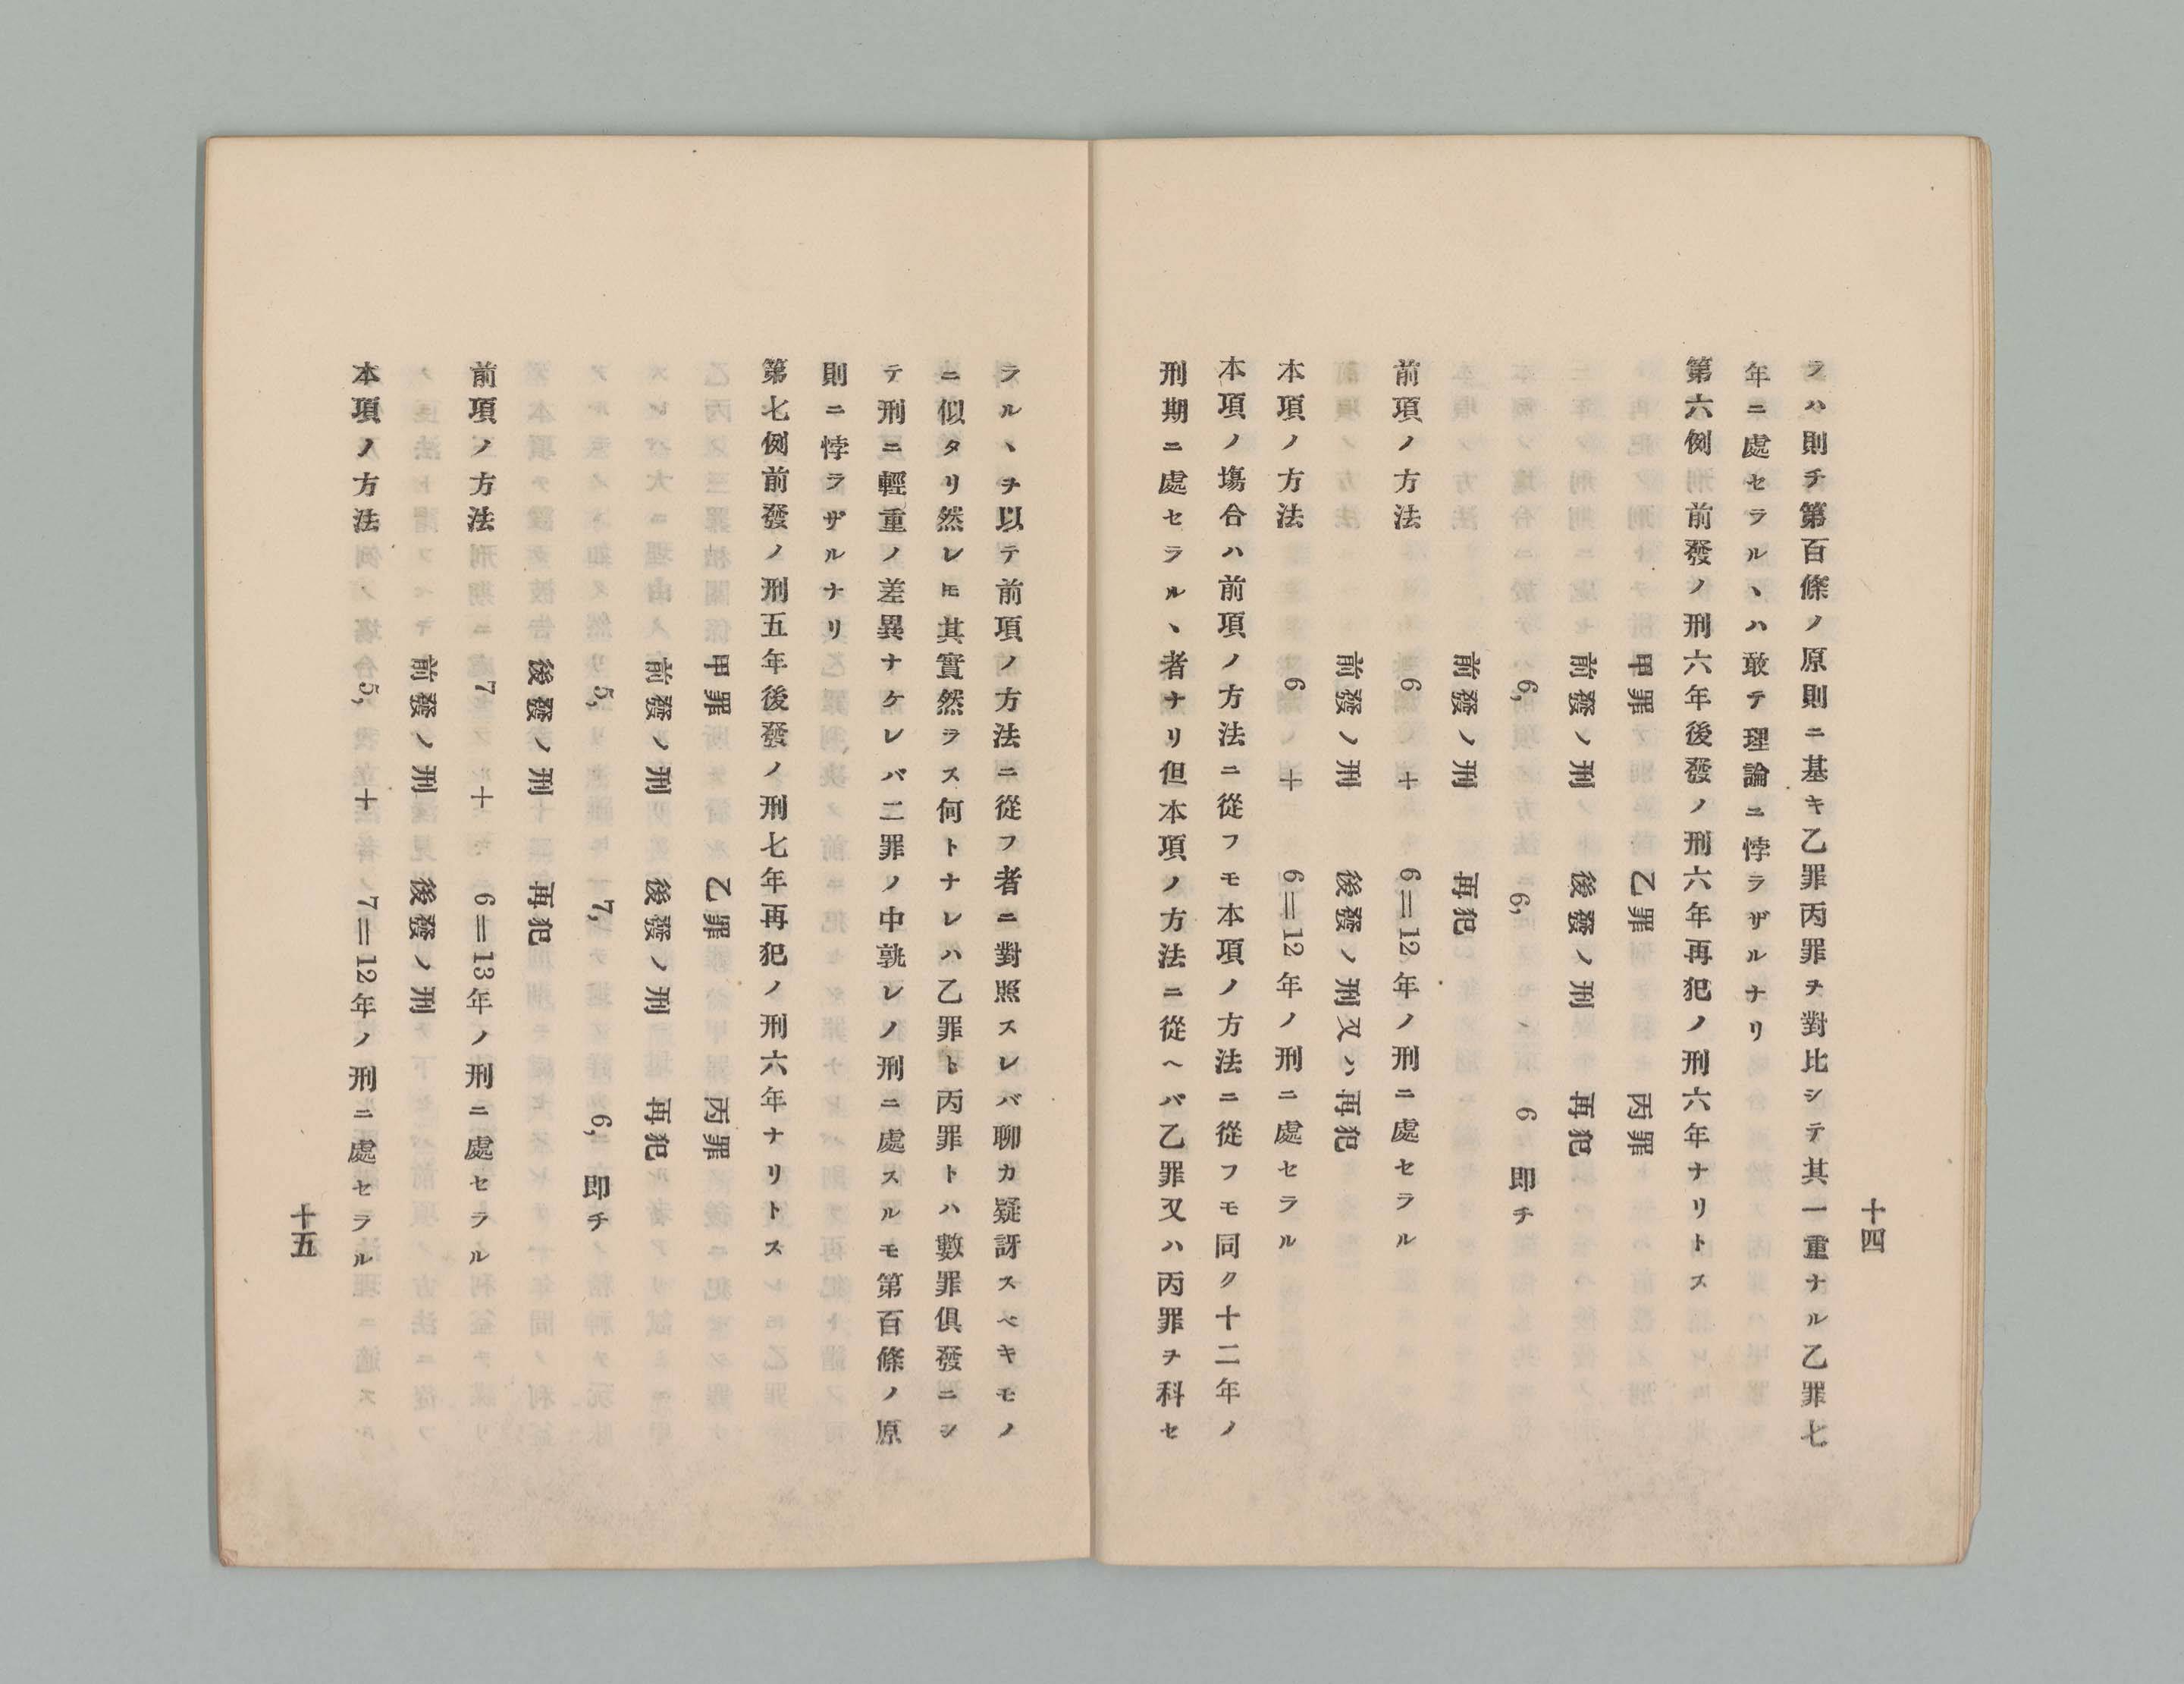 十四
ラハ則チ第百條ノ原則ニ基キ乙罪丙罪ヲ對比シテ其一重ナル乙罪七
年ニ處セラルヽハ敢テ理論ニ悖ラザルナリ
第六例 前發ノ刑六年後發ノ刑六年再犯ノ刑六年ナリトス
甲罪 乙罪 丙罪
前發ノ刑 後發ノ刑 再犯
6, 6, 6 即チ
前發ノ刑 再犯
前項ノ方法 6 + 6=12年ノ刑ニ處セラル
前發ノ刑 後發ノ刑又ハ再犯
本項ノ方法 6 + 6=12年ノ刑ニ處セラル
本項ノ塲合ハ前項ノ方法ニ從フモ本項ノ方法ニ從フモ同ク十二年ノ
刑期ニ處セラルヽ者ナリ但本項ノ方法ニ從ヘバ乙罪又ハ丙罪ヲ科セ
ラルヽヲ以テ前項ノ方法ニ從フ者ニ對照スレバ聊カ疑訝スベキモノ
ニ似タリ然レ𪜈其實然ラス何トナレハ乙罪ト丙罪トハ數罪俱發ニシ
テ刑ニ輕重ノ差異ナケレバ二罪ノ中孰レノ刑ニ處スルモ第百條ノ原
則ニ悖ラザルナリ
第七例前發ノ刑五年後發ノ刑七年再犯ノ刑六年ナリトス
甲罪 乙罪 丙罪
前發ノ刑 後發ノ刑 再犯
5, 7, 6, 即チ
後發ノ刑 再犯
前項ノ方法 7 + 6=13年ノ刑ニ處セラル
前發ノ刑 後發ノ刑
本項ノ方法 5, + 7=12年ノ刑ニ處セラル
十五